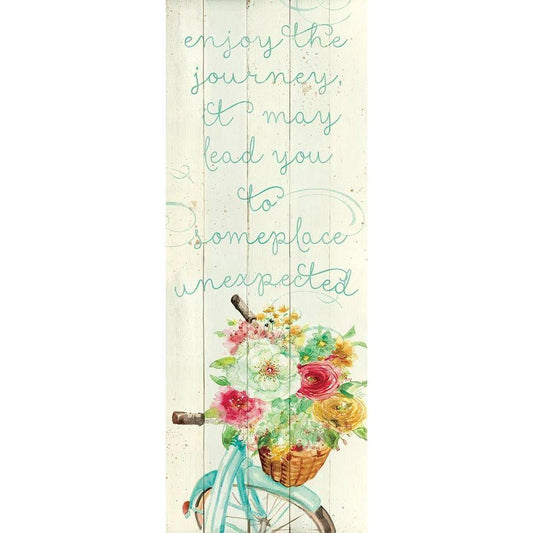 enjoy the
journey,
it may
lead you
to
someplace
unexpected